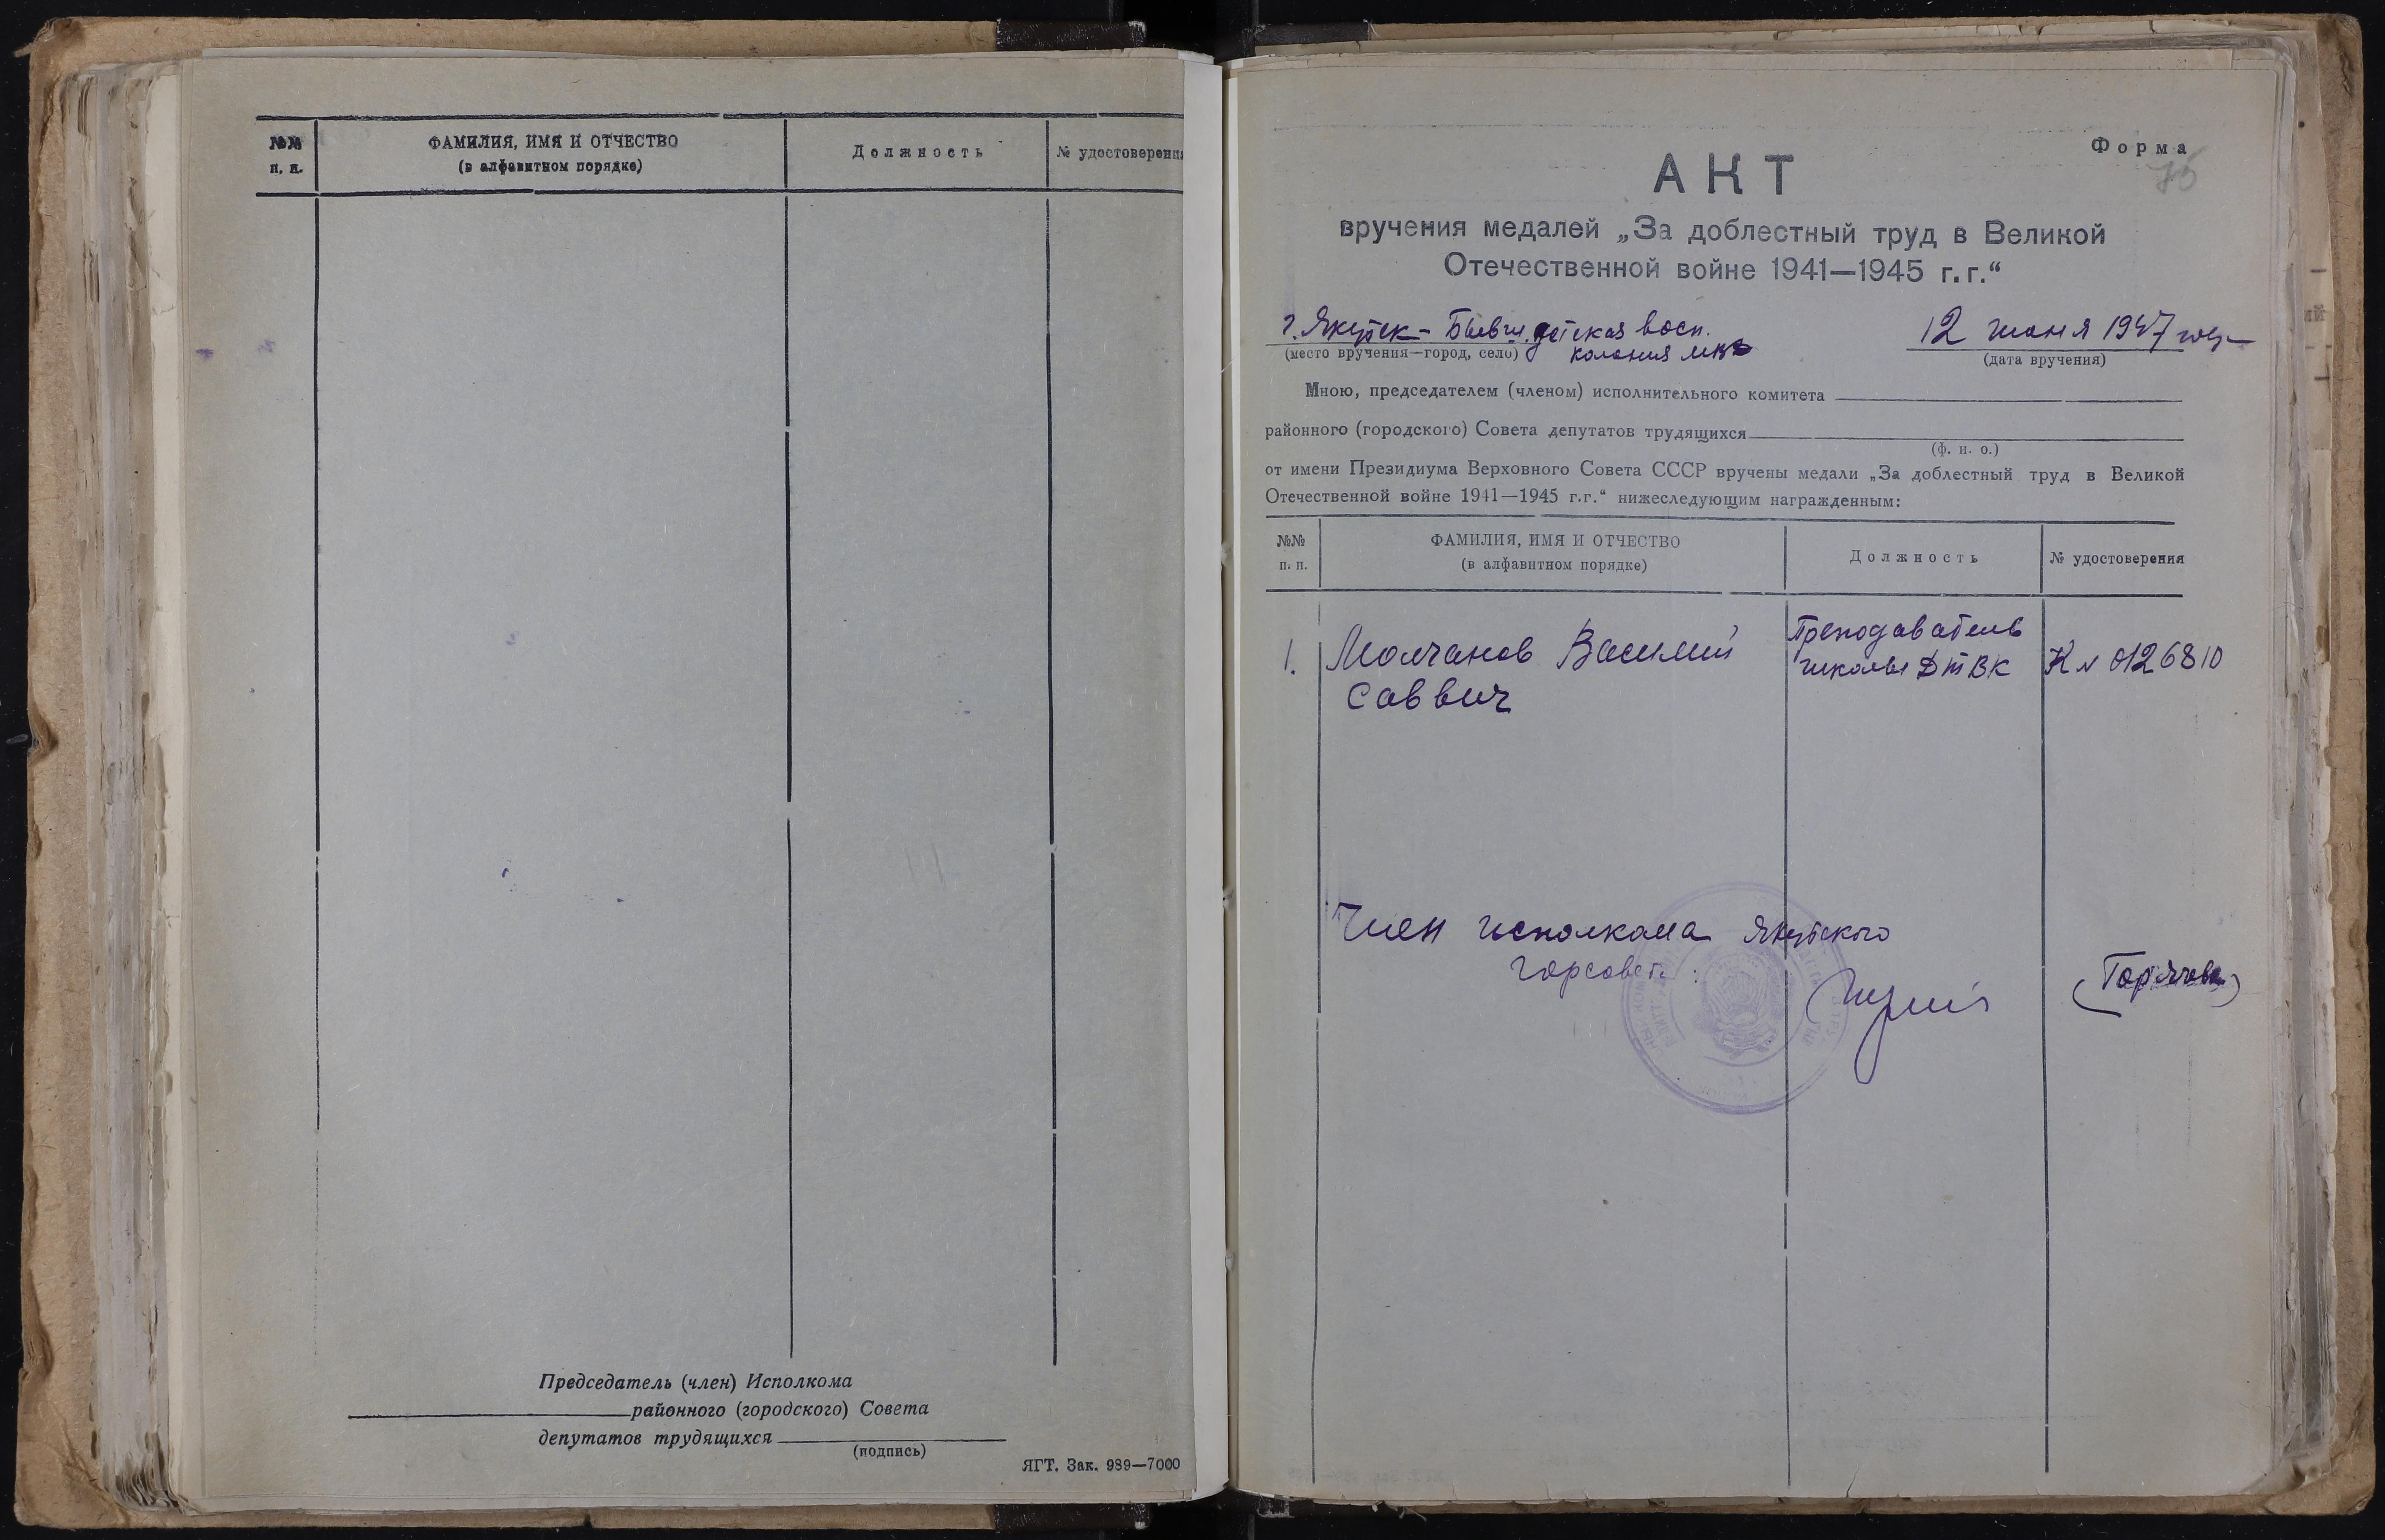 №№
п. п.
ФАМИЛИЯ, ИМЯ И ОТЧЕСТВО
(в алфавитном порядке)
Должность
№ удостоверени
Председатель (член) Исполкома
районного (городского) Совета
депутатов трудящихся
(подпись)
ЯГТ. Зак. 989—7000
Форма
75
АКТ
вручения медалей „За доблестный труд в Великой
Отечественной войне 1941—1945 г.г.“
г. Якутск - Бывш. детская восп.
колония МВД
(место вручения—город, село)
12 июня 1947 года
(дата вручения)
Мною, председателем (членом) исполнительного комитета
районного (городского) Совета депутатов трудящихся
(ф. и. о.)
от имени Президиума Верховного Совета СССР вручены медали „За доблестный труд в Великой
Отечественной войне 1941—1945 г.г.“ нижеследующим награжденным:
№№
п. п.
ФАМИЛИЯ, ИМЯ И ОТЧЕСТВО
(в алфавитном порядке)
Должность
№ удостоверения
1. Молчанов Василий
Саввич
Преподаватель
школы ДТВК
К № 0126810
Член исполкома Якутского
горсовета: